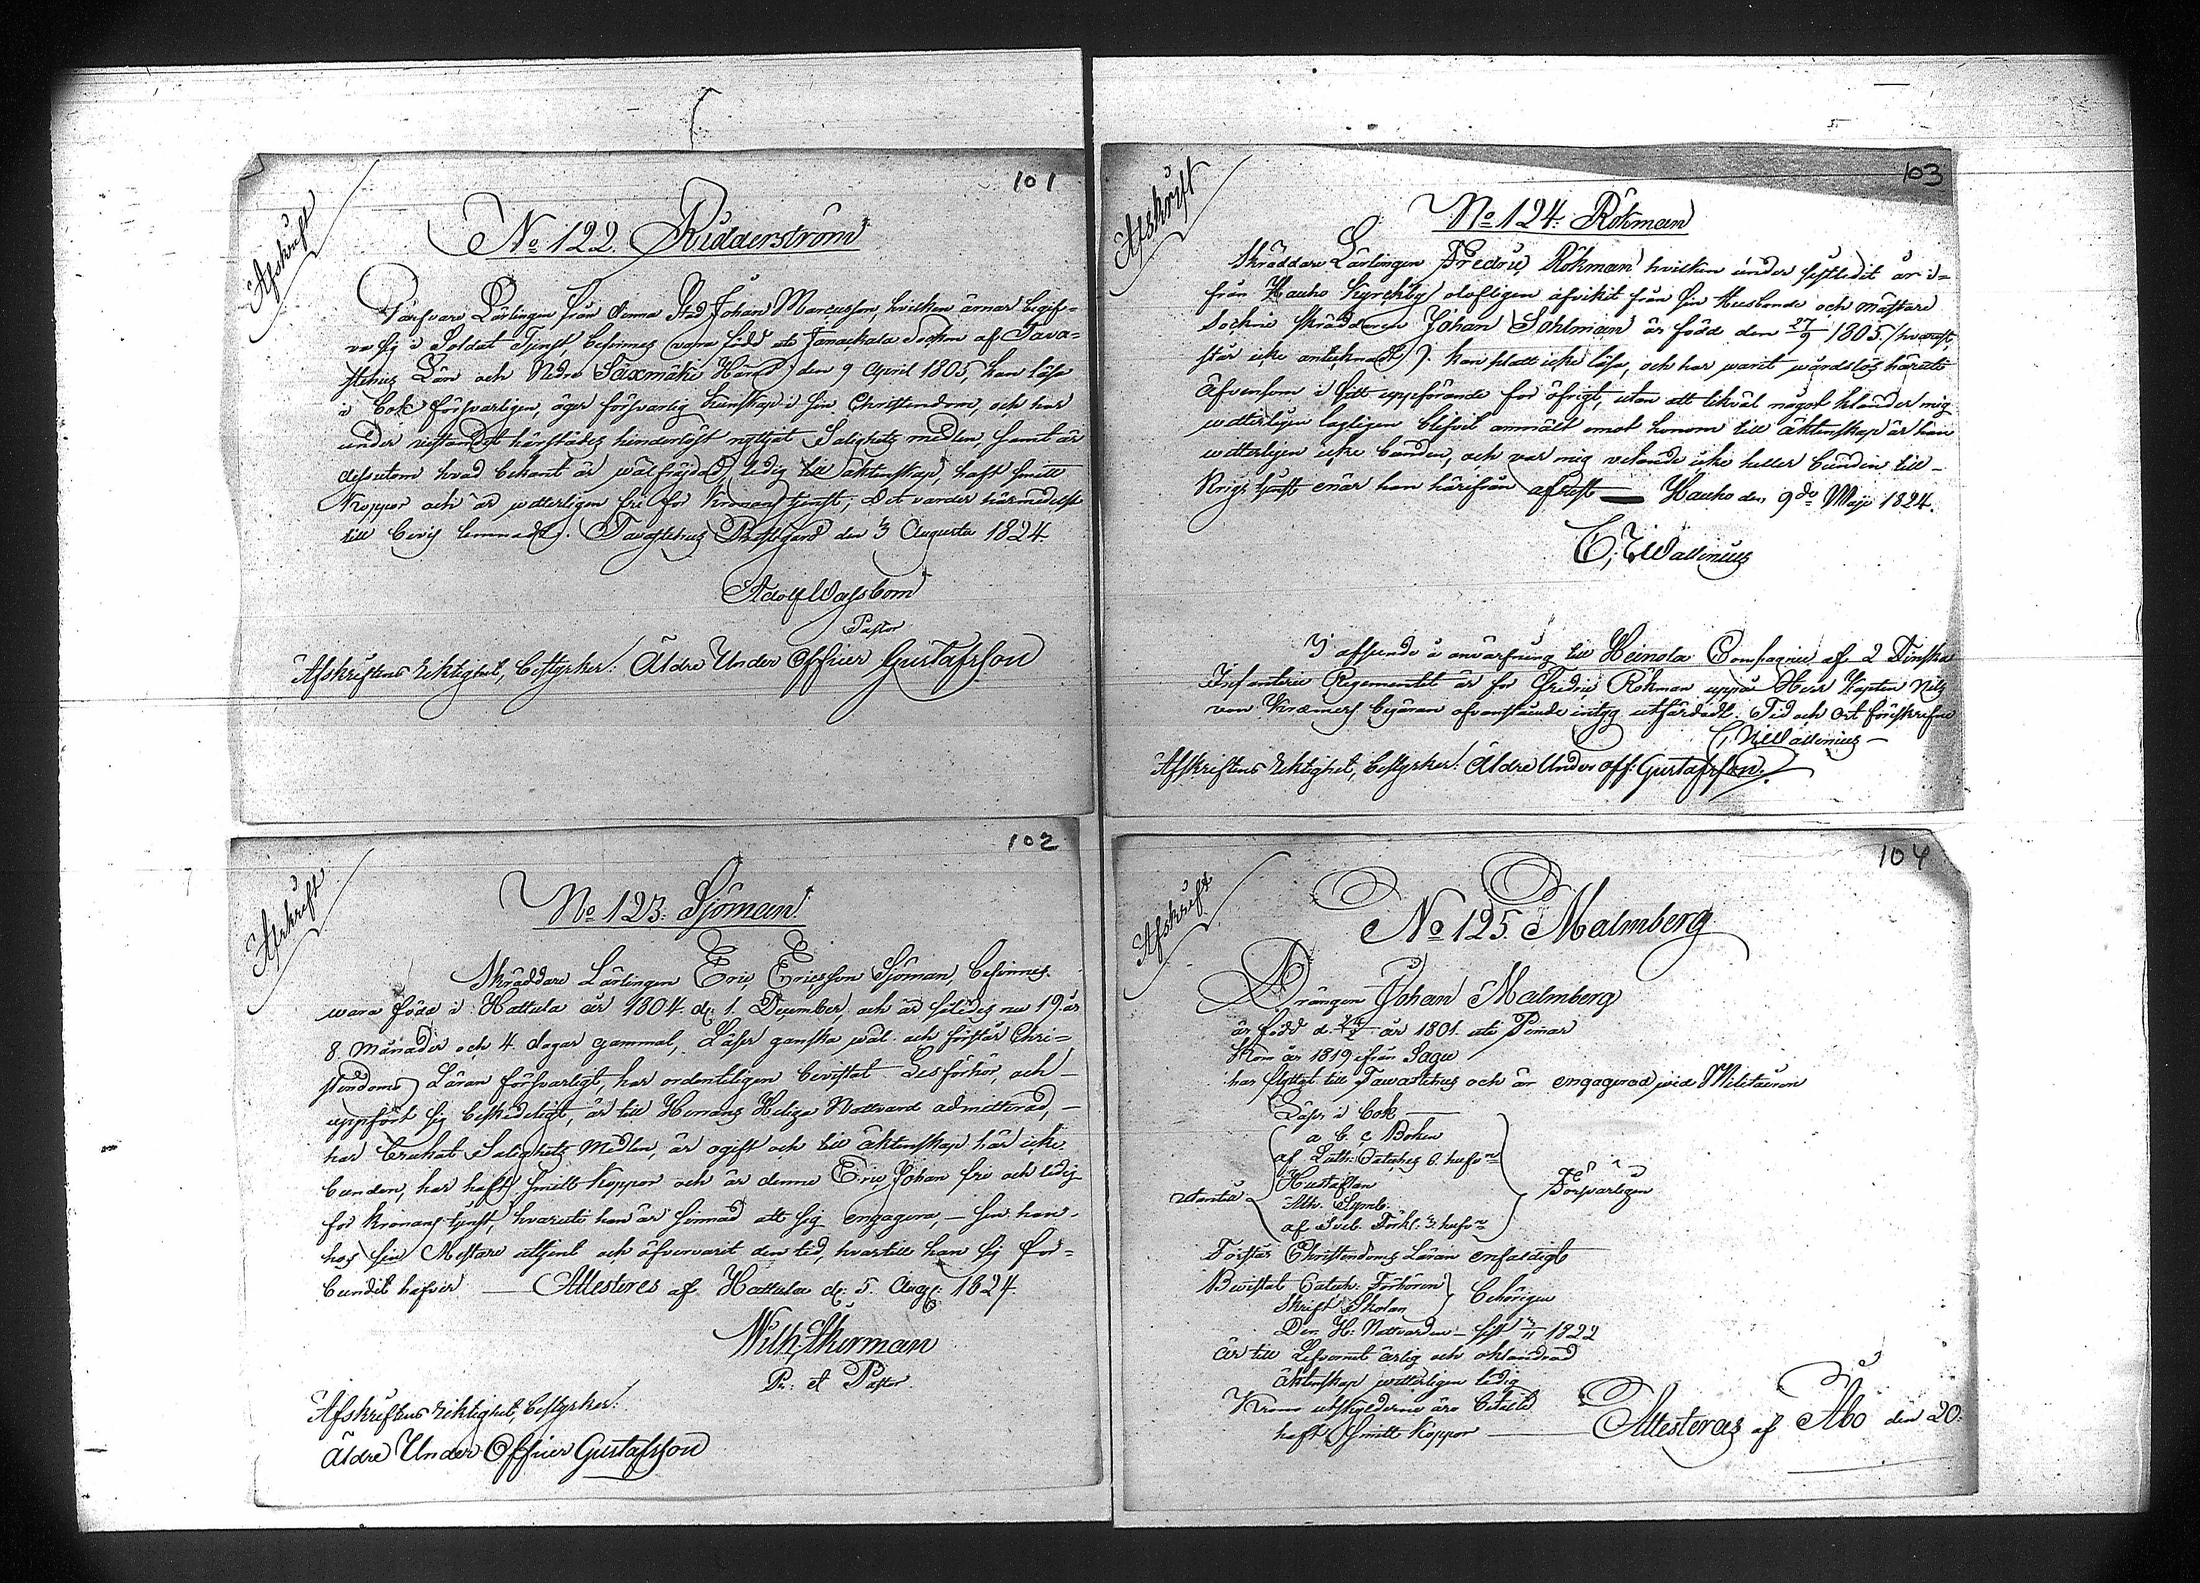 101
Afskrift
No 122. Ridderström
Garfvare Lärlingen från denna Stad Johan Marcusson, hvilken ärnar begif-
va sig i Soldat Tjenst befinnes vara född uti Janackala Socken af Tava-
stehus Län och Nedre Säxmäki Härad den 9 April 1805, kan läsa
i bok försvarligen, äger försvarlig kunskap i sin Christendom, och har
under vistandet härstädes hinderlöst nyttjat Salighets medlen, samt är
dessutom hvad bekant är wälfräjdad, ledig till äktenskap, haft smitt
Koppor och är witterligen fri för Kronans tjenst; det varder härmedelst
till bevis lemnadt. Tavastehus Prästgård den 3 Augusti 1824.
Adolf Wassbom
Pastor
Afskriftens riktighet, bestyrker: Äldre Under Officer Gustafsson
102
Afskrift
No 123. Sjöman.
Skräddare Lärlingen Eric Ericsson Sjöman, befinnes
wara född i Hattula år 1804. d: 1. December, och är således nu 19. år
8. Månader och 4. dagar gammal, Läser ganska wäl och förstår Chri-
stendoms Läran försvarligt, har ordenteligen bevistat Läsförhör, och
uppfört sig beskedeligt, är till Herrans Heliga Nattvard admitterad, —
har brukat Salighets Medlen, är ogift och till äktenskap här icke
bunden, har haft smitt koppor och är denne Eric Johan fri och ledig
för Kronans tjenst, hvaruti han är sinnad att sig engagera, — sen han
hos sin Mästare uttjent och öfvervarit den tid, hvartill han sig för-
bundit hafver — Attesteres af Hattula d: 5. Aug: 1824.
Wilh Åkerman
Pr: et Pastor.
Afskriftens riktighet, bestyrker:
Äldre Under Officer Gustafsson
103
Afskrift
No 124. Rökman
Skräddare Lärlingen Fredric Rökman hvilken under sistledit år i-
från Hauho Kyrckby olofligen afvikit från sin Husbonde och mästare
Sockne skräddaren Johan Sohlman är född den 27/9 1805. /hvarest,
står icke antecknadt/. kan platt icke läsa, och har warit wårdslös häruti
äfvensom i sitt uppförande för öfrigt, utan att likväl något klander mig
witterligen lagligen blifvit anmält emot honom till äktenskap är han
witterligen icke bunden, och var mig vetande icke heller bunden till
Krigs tjenst enär han härifrån afvek — Hauho den 9de Maji 1824.
Wallenius
I afseende å anvärfning till Heinola Compagnie af 2 Finska
Infanterie Regementet är för Fredric Rökman uppå Herr Kapten Nils
von Kræmers begäran ofvanstående intyg utfärdadt. Tid och ort föreskrefne
Wallenius —
Afskriftens riktighet, bestyrker: Äldre Under Off: Gustafsson.
104
Afskrift
No 125. Malmberg
Drängen Johan Malmberg
är född d. år 1801. uti Pemar
Kom år 1819 ifrån Sagu
har flyttat till Tawastehus och är engagerad wid Militairen
Läser i bok —
a b. c Boken
af Luth: Cateches 6. hufv:
Hustaflan
Ath. Symb.
af Sveb. Förkl: 3. hufv:
utantill
Försvarligen
Förstår Christendoms Läran enfaldigt
Bevistat Catech. Förhören
Skrift Skolan
behörigen
Den H: Nattvarden — sist 3/11 1822
är till Lefvernet ärlig och oklandrad
äktenskap witterligen ledig
Krono utskylderne äro betald
haft smitt koppor — Attesteras af Åbo den 20.